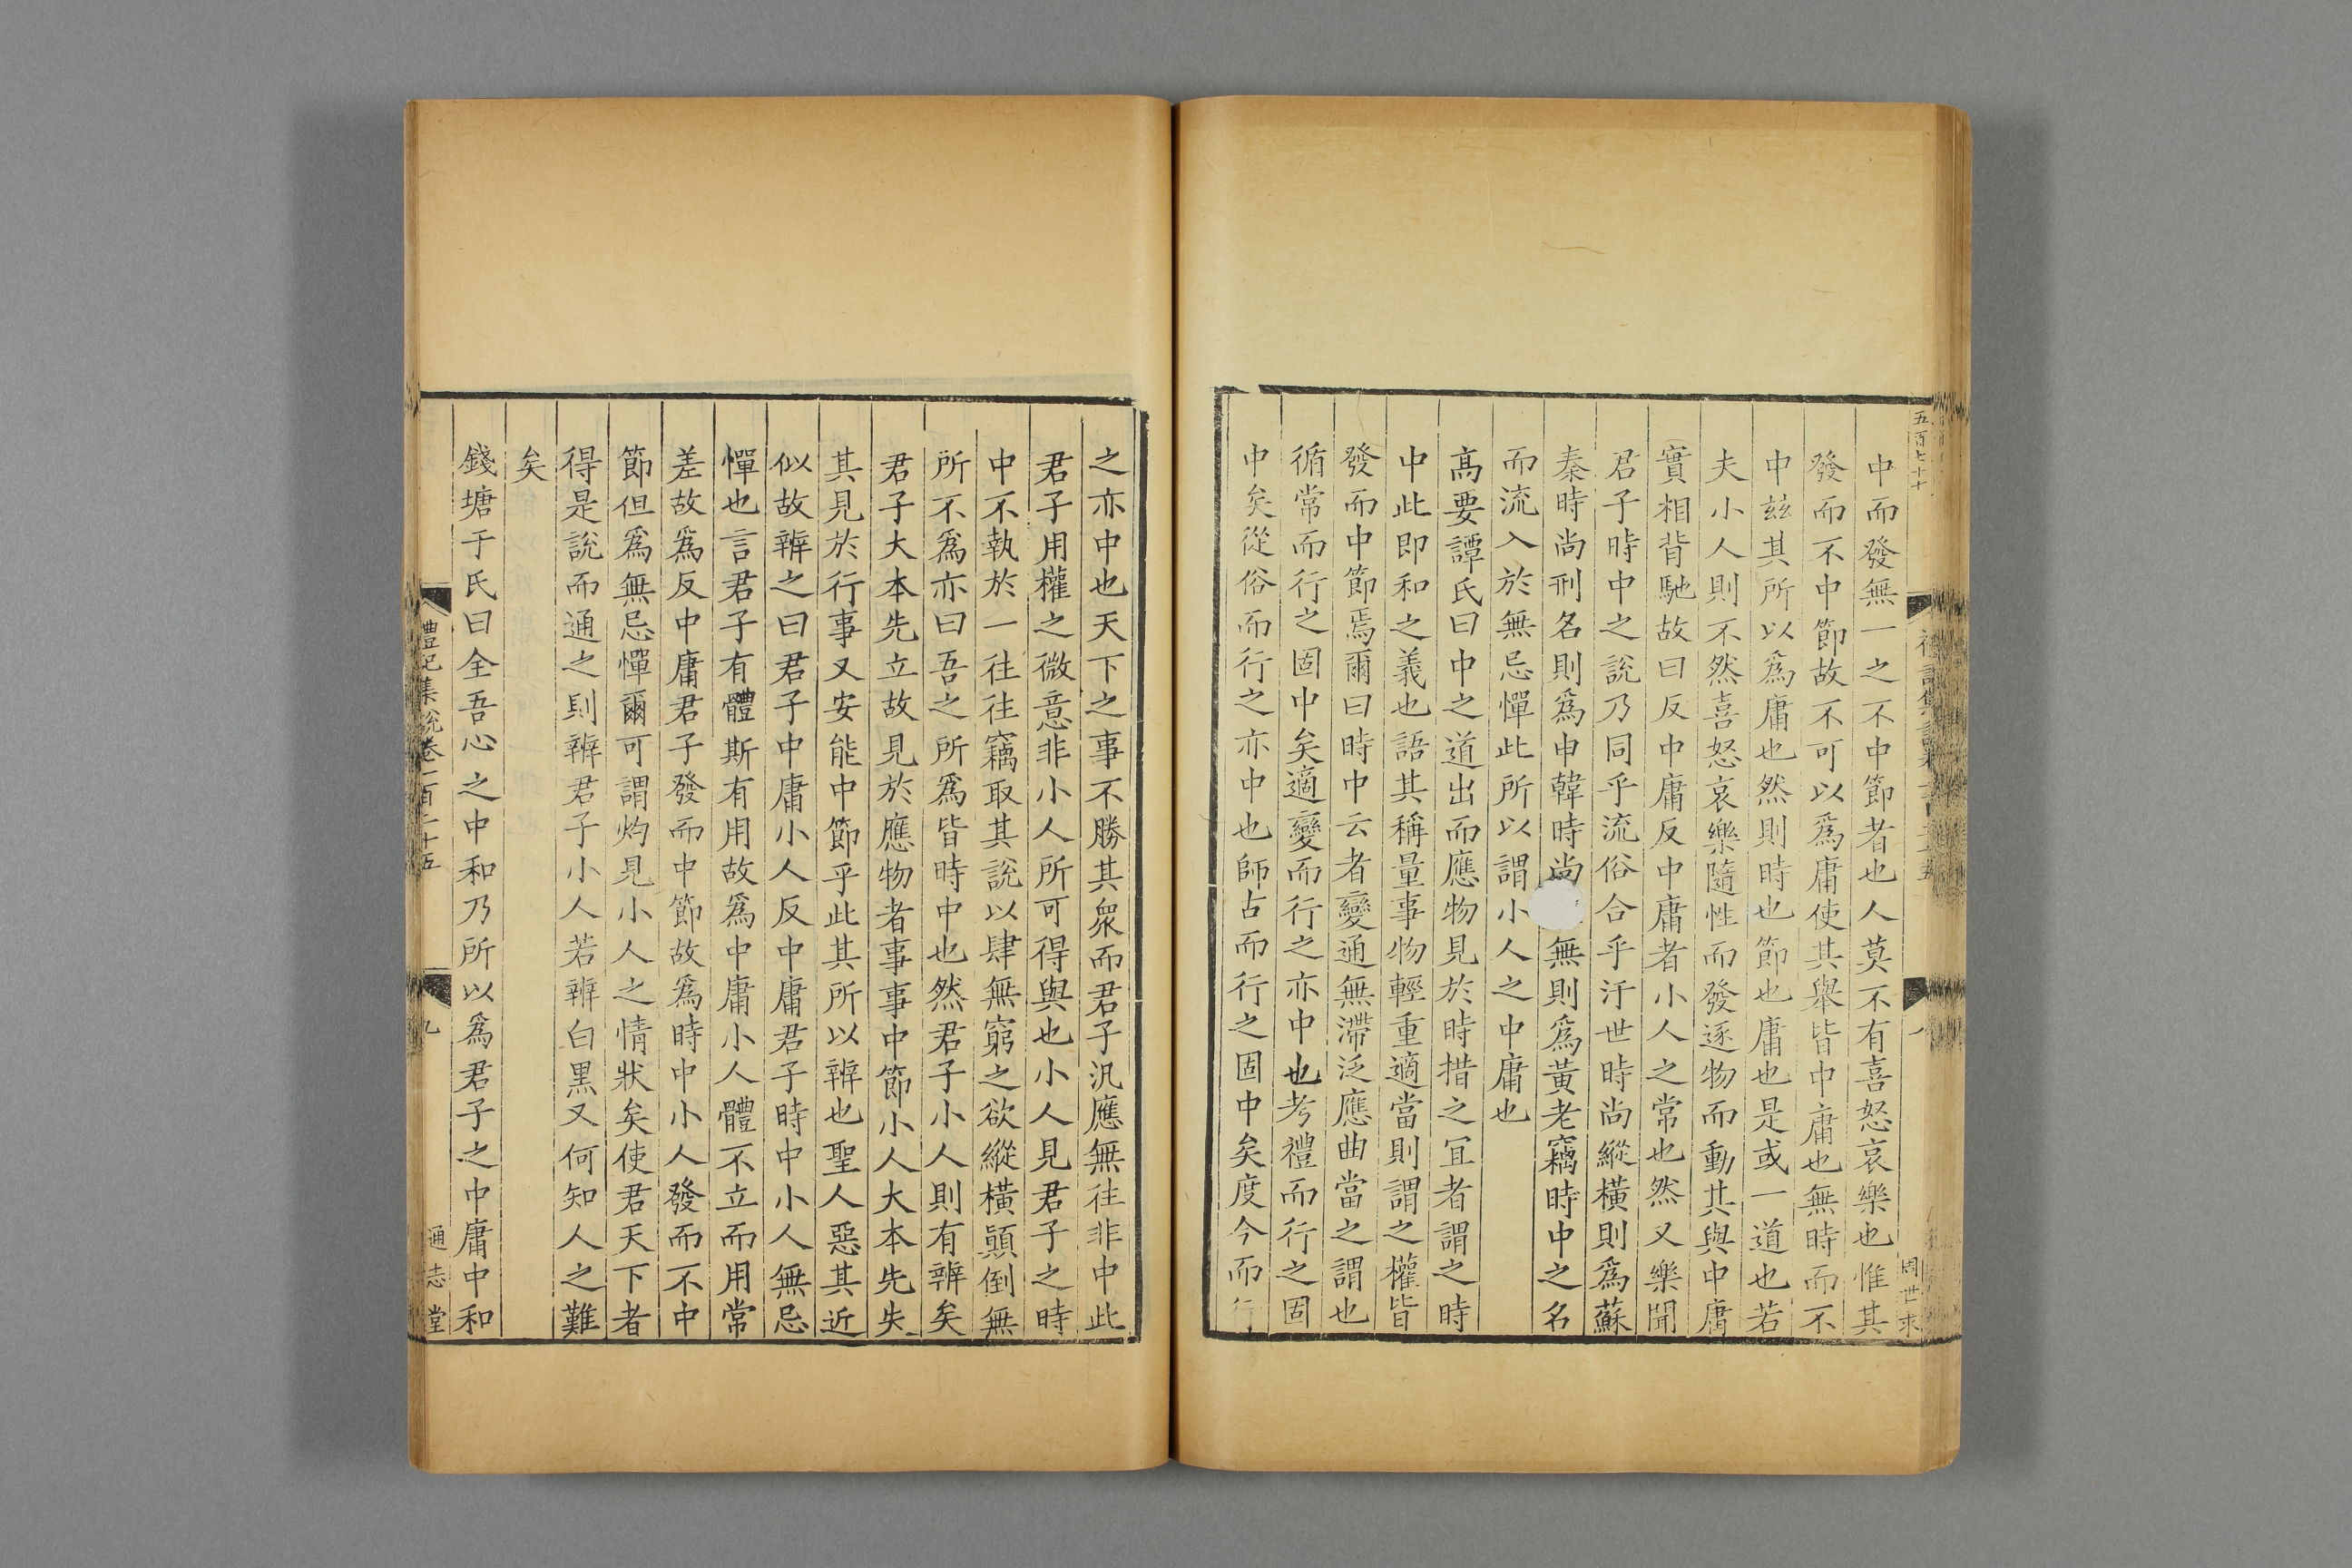 五百七十
中而發無一之不中節者也人莫不有喜怒哀樂也惟其
發而不中節故不可以爲庸使其舉皆中庸也無時而不
中兹其所以爲庸也然則時也節也庸也是或一道也若
夫小人則不然喜怒哀樂隨性而發逐物而動其與中庸
實相背馳故曰反中庸反中庸者小人之常也然又樂聞
君子時中之說乃同乎流俗合乎汙世時尚縱橫則爲蘇
秦時尚刑名則爲申韓時尚無則爲黃老竊時中之名
而流入於無忌憚此所以謂小人之中庸也
髙要譚氏曰中之道出而應物見於時措之宜者謂之時
中此即和之義也語其稱量事物輕重適當則謂之權皆
發而中節焉爾曰時中云者變通無滯泛應曲當之謂也
循常而行之固中矣適變而行之亦中也考禮而行之固
中矣從俗而行之亦中也師古而行之固中矣度今而行
之亦中也天下之事不勝其衆而君子汎應無往非中此
君子用權之微意非小人所可得與也小人見君子之時
中不執於一往往竊取其說以肆無窮之欲縱橫顚倒無
所不爲亦曰吾之所爲皆時中也然君子小人則有辨矣
君子大本先立故見於應物者事事中節小人大本先失
其見於行事又安能中節乎此其所以辨也聖人惡其近
似故辨之曰君子中庸小人反中庸君子時中小人無忌
憚也言君子有體斯有用故爲中庸小人體不立而用常
差故爲反中庸君子發而中節故爲時中小人發而不中
節但爲無忌憚爾可謂灼見小人之情狀矣使君天下者
得是說而通之則辨君子小人若辨白黑又何知人之難
矣
錢塘于氏曰全吾心之中和乃所以爲君子之中庸中和
禮記集說卷一百二十五
九
通志堂